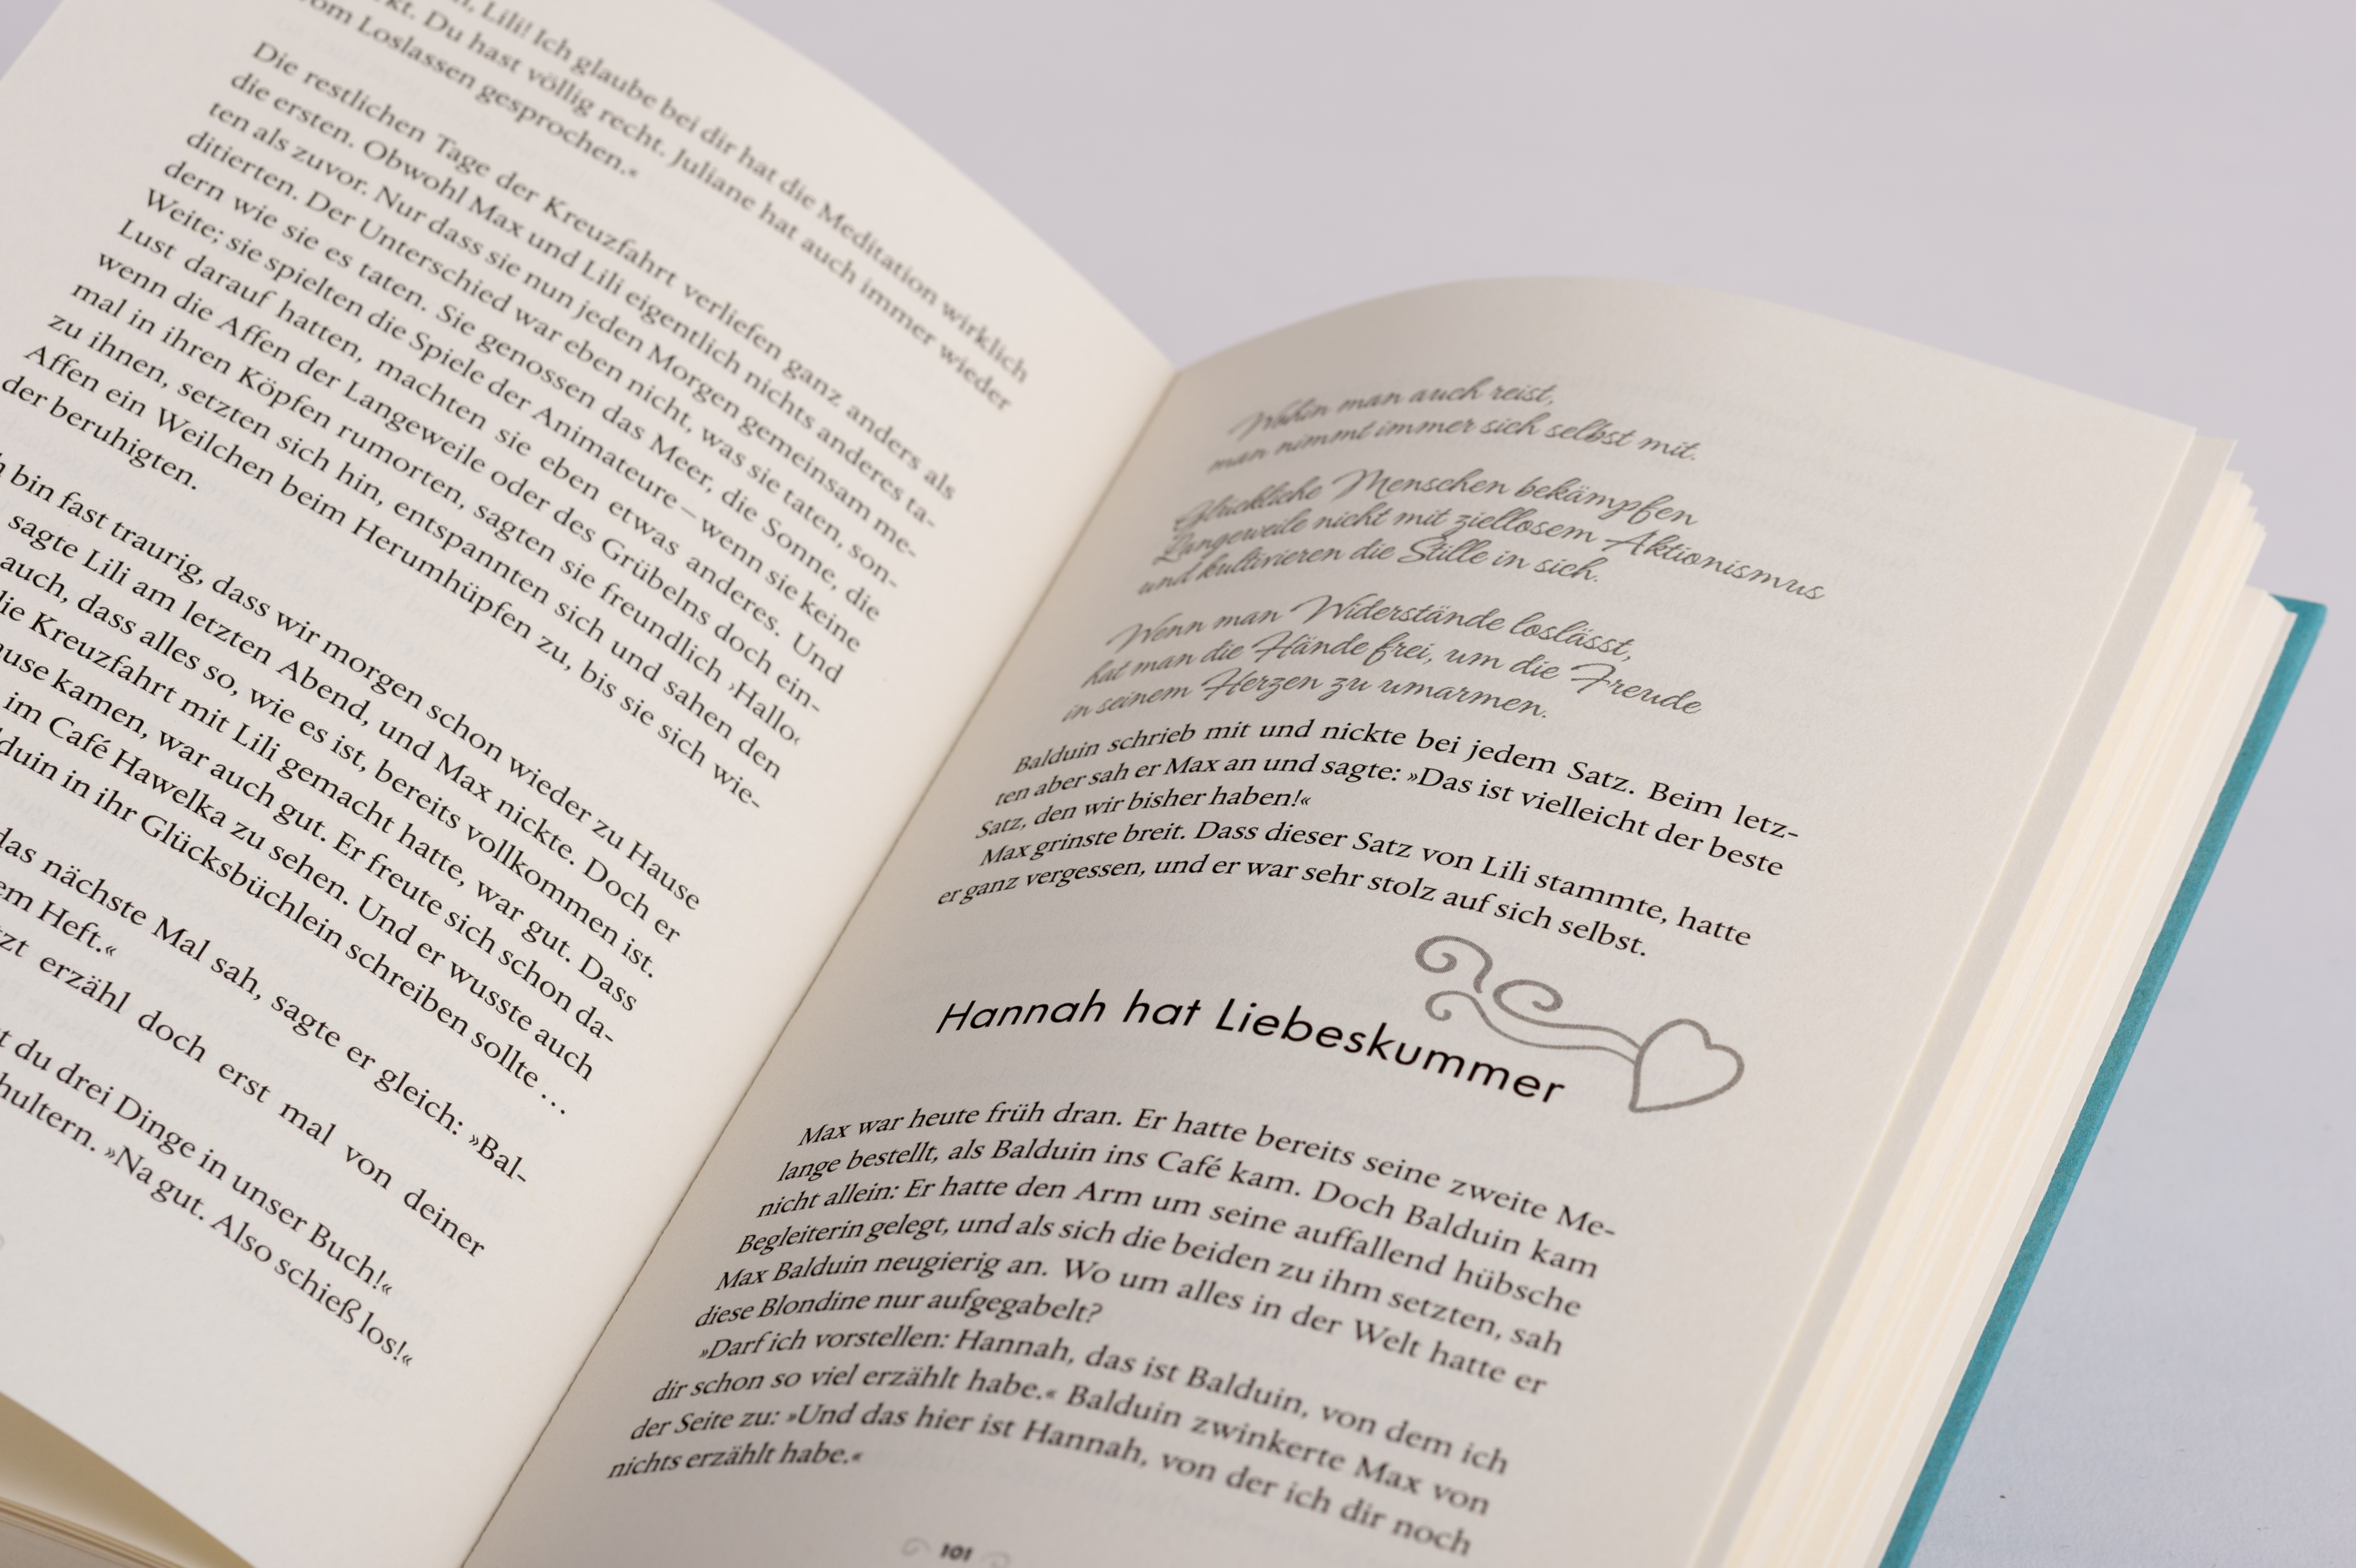 , Lili! Ich glaube bei dir hat die Meditation wirklich
Du hast völlig recht. Juliane hat auch immer wieder
vom Loslassen gesprochen.«
Die restlichen Tage der Kreuzfahrt verliefen ganz anders als
die ersten. Obwohl Max und Lili eigentlich nichts anderes ta-
ten als zuvor. Nur dass sie nun jeden Morgen gemeinsam me-
ditierten. Der Unterschied war eben nicht, was sie taten, son-
dern wie sie es taten. Sie genossen das Meer, die Sonne, die
Weite; sie spielten die Spiele der Animateure – wenn sie keine
Lust darauf hatten, machten sie eben etwas anderes. Und
wenn die Affen der Langeweile oder des Grübelns doch ein-
mal in ihren Köpfen rumorten, sagten sie freundlich ›Hallo‹
zu ihnen, setzten sich hin, entspannten sich und sahen den
Affen ein Weilchen beim Herumhüpfen zu, bis sie sich wie-
der beruhigten.
bin fast traurig, dass wir morgen schon wieder zu Hause
sagte Lili am letzten Abend, und Max nickte. Doch er
auch, dass alles so, wie es ist, bereits vollkommen ist.
die Kreuzfahrt mit Lili gemacht hatte, war gut. Dass
kamen, war auch gut. Er freute sich schon da-
im Café Hawelka zu sehen. Und er wusste auch
in ihr Glücksbüchlein schreiben sollte …
das nächste Mal sah, sagte er gleich: »Bal-
Heft.«
erzähl doch erst mal von deiner
du drei Dinge in unser Buch!«
»Na gut. Also schieß los!«
Wohin man auch reist,
man nimmt immer sich selbst mit.
Glückliche Menschen bekämpfen
Langeweile nicht mit ziellosem Aktionismus
und kultivieren die Stille in sich.
Wenn man Widerstände loslässt,
hat man die Hände frei, um die Freude
in seinem Herzen zu umarmen.
Balduin schrieb mit und nickte bei jedem Satz. Beim letz-
ten aber sah er Max an und sagte: »Das ist vielleicht der beste
Satz, den wir bisher haben!«
Max grinste breit. Dass dieser Satz von Lili stammte, hatte
er ganz vergessen, und er war sehr stolz auf sich selbst.
Hannah hat Liebeskummer
Max war heute früh dran. Er hatte bereits seine zweite Me-
lange bestellt, als Balduin ins Café kam. Doch Balduin kam
nicht allein: Er hatte den Arm um seine auffallend hübsche
Begleiterin gelegt, und als sich die beiden zu ihm setzten, sah
Max Balduin neugierig an. Wo um alles in der Welt hatte er
diese Blondine nur aufgegabelt?
»Darf ich vorstellen: Hannah, das ist Balduin, von dem ich
dir schon so viel erzählt habe.« Balduin zwinkerte Max von
der Seite zu: »Und das hier ist Hannah, von der ich dir noch
nichts erzählt habe.«
101